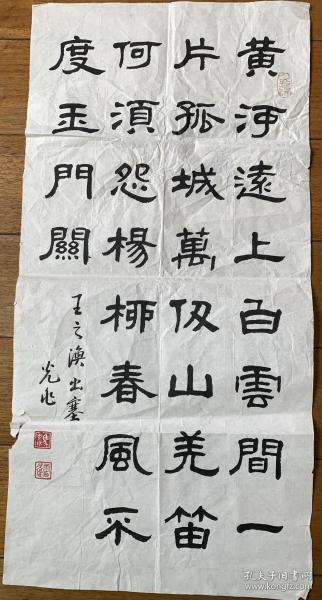 黄河遠上白雲間一
片孤城萬仭山羌笛
何須怨楊柳春風不
度玉門關
王之渙出塞
光兆
孔夫子旧书网